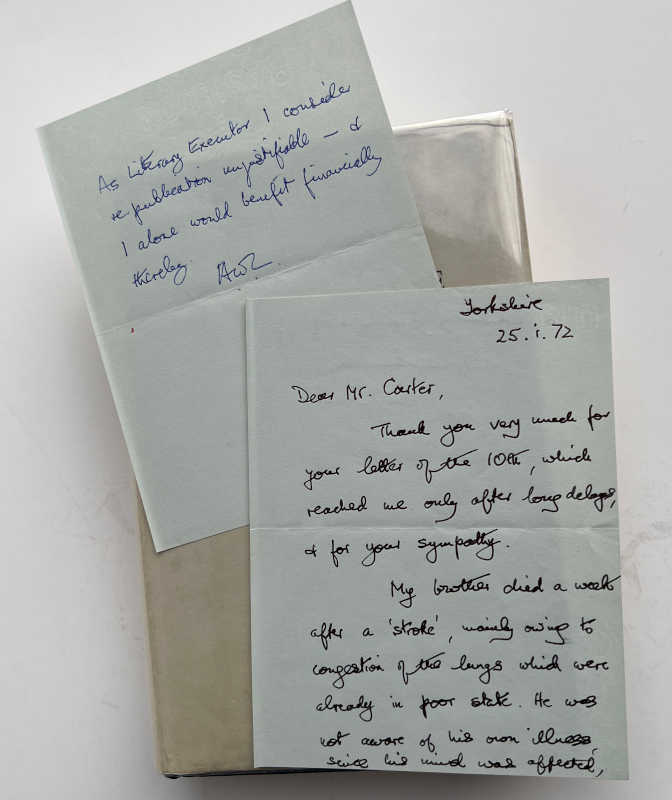 As Literary Executor I consider
re publication unjustifiable — &
I alone would benefit financially
thereby. AWL.
Yorkshire
25.i.72
Dear Mr. Carter,
Thank you very much for
your letter of the 10th, which
reached me only after long delays,
& for your sympathy.
My brother died a week
after a 'stroke', mainly owing to
congestion of the lungs which were
already in poor state. He was
not aware of his own illness,
since his mind was affected,